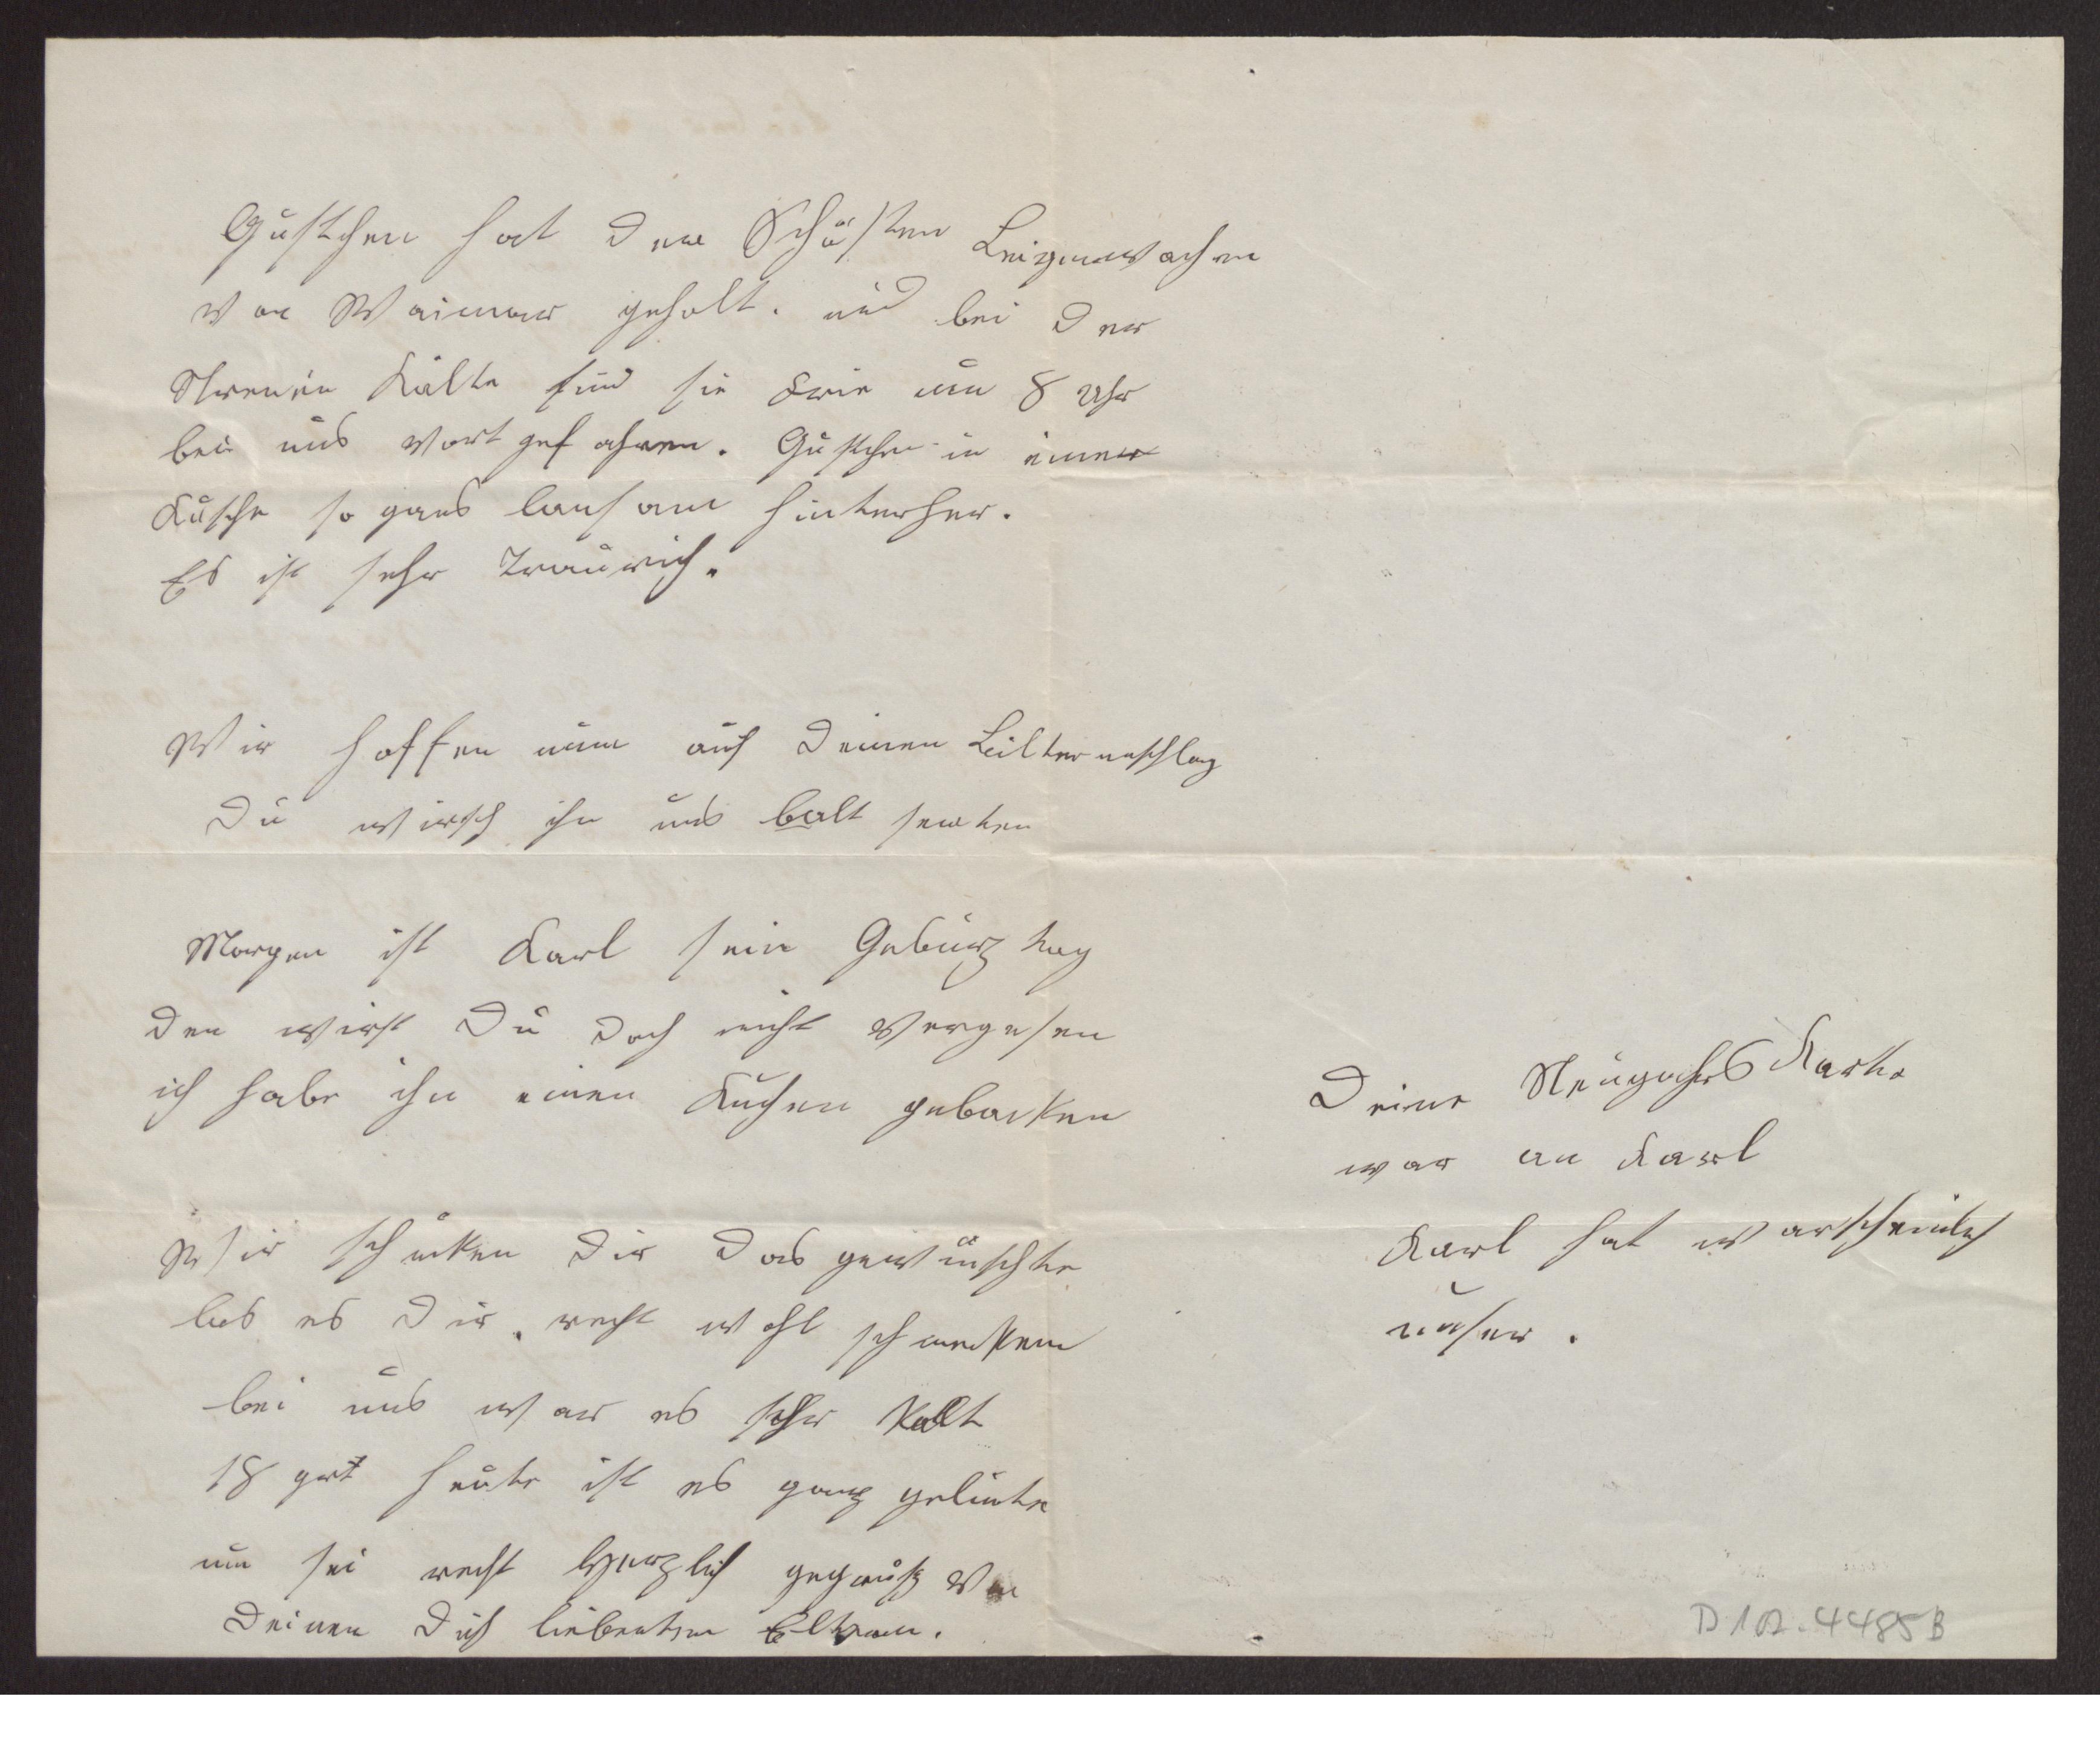 Gustchen hat den Schösten Leigenwachen
von Waimar geholt. und bei der
Strenen Kälte sind sie Frie um 8 Uhr
bei uns vort gefahren. Gustchen in einer
Kusche so gans lansam hinterher.
Es ist sehr Traurich.
Wir hoffen nun auf deinen
Du wirsch ihn uns balt senten
Morgen ist Karl sein Geburztag
den wirst Du doch nicht vergesen
ich habe ihn einen Kuchen gebacken
Wir schicken Dir das gewünschte
las es Dir recht wohl schmecken
bei uns war es sehr Kalt
18 grt heute ist es ganz gelinte
nun sei recht Herzlich gegrüßt von
Deinen Dich liebenten Eltern.
Deine Neugahrs Karte
war an Karl
Karl hat warscheinlich
unser.
D 102.4485B